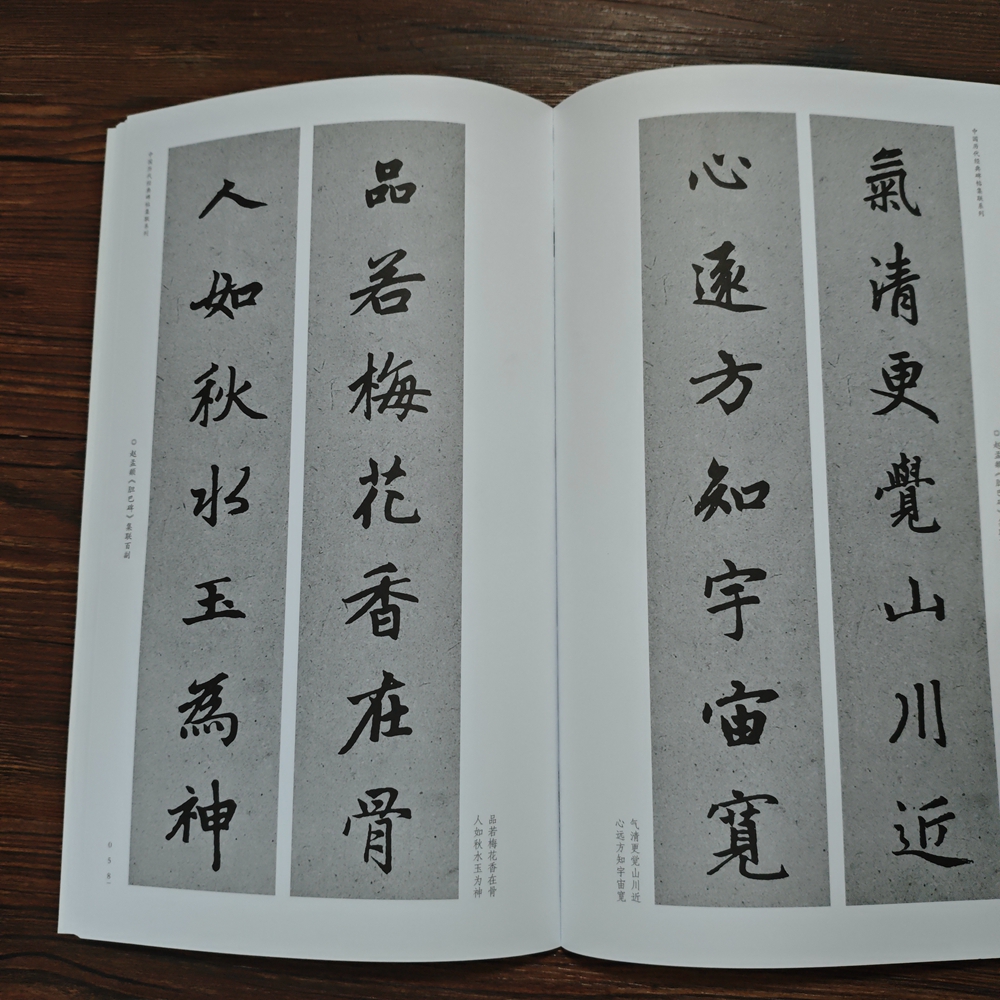 中国历代经典碑帖集联系列
氣清更覺山川近
心遠方知宇宙寬
气清更觉山川近
心远方知宇宙宽
品若梅花香在骨
人如秋水玉為神
品若梅花香在骨
人如秋水玉为神
中国历代经典碑帖集联系列
◎ 赵孟頫《胆巴碑》集联百副
058